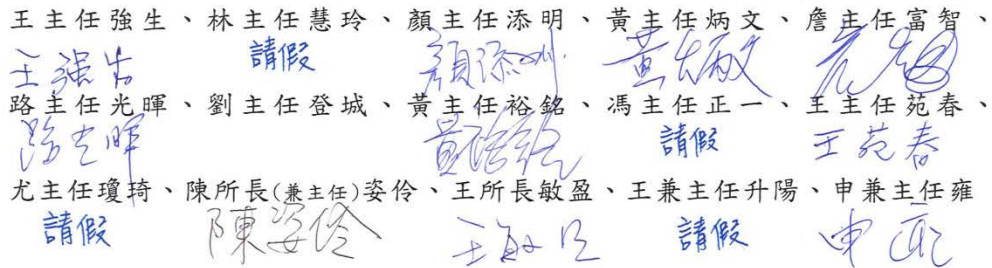 王主任強生、林主任慧玲、顏主任添明、黃主任炳文、詹主任富智、
王強生 請假 顏添明 黃炳文
路主任光暉、劉主任登城、黃主任裕銘、馮主任正一、王主任苑春、
路光暉 黃裕銘 請假 王苑春
尤主任瓊琦、陳所長(兼主任)姿伶、王所長敏盈、王兼主任升陽、申兼主任雍
請假 陳姿伶 王敏盈 請假 申雍